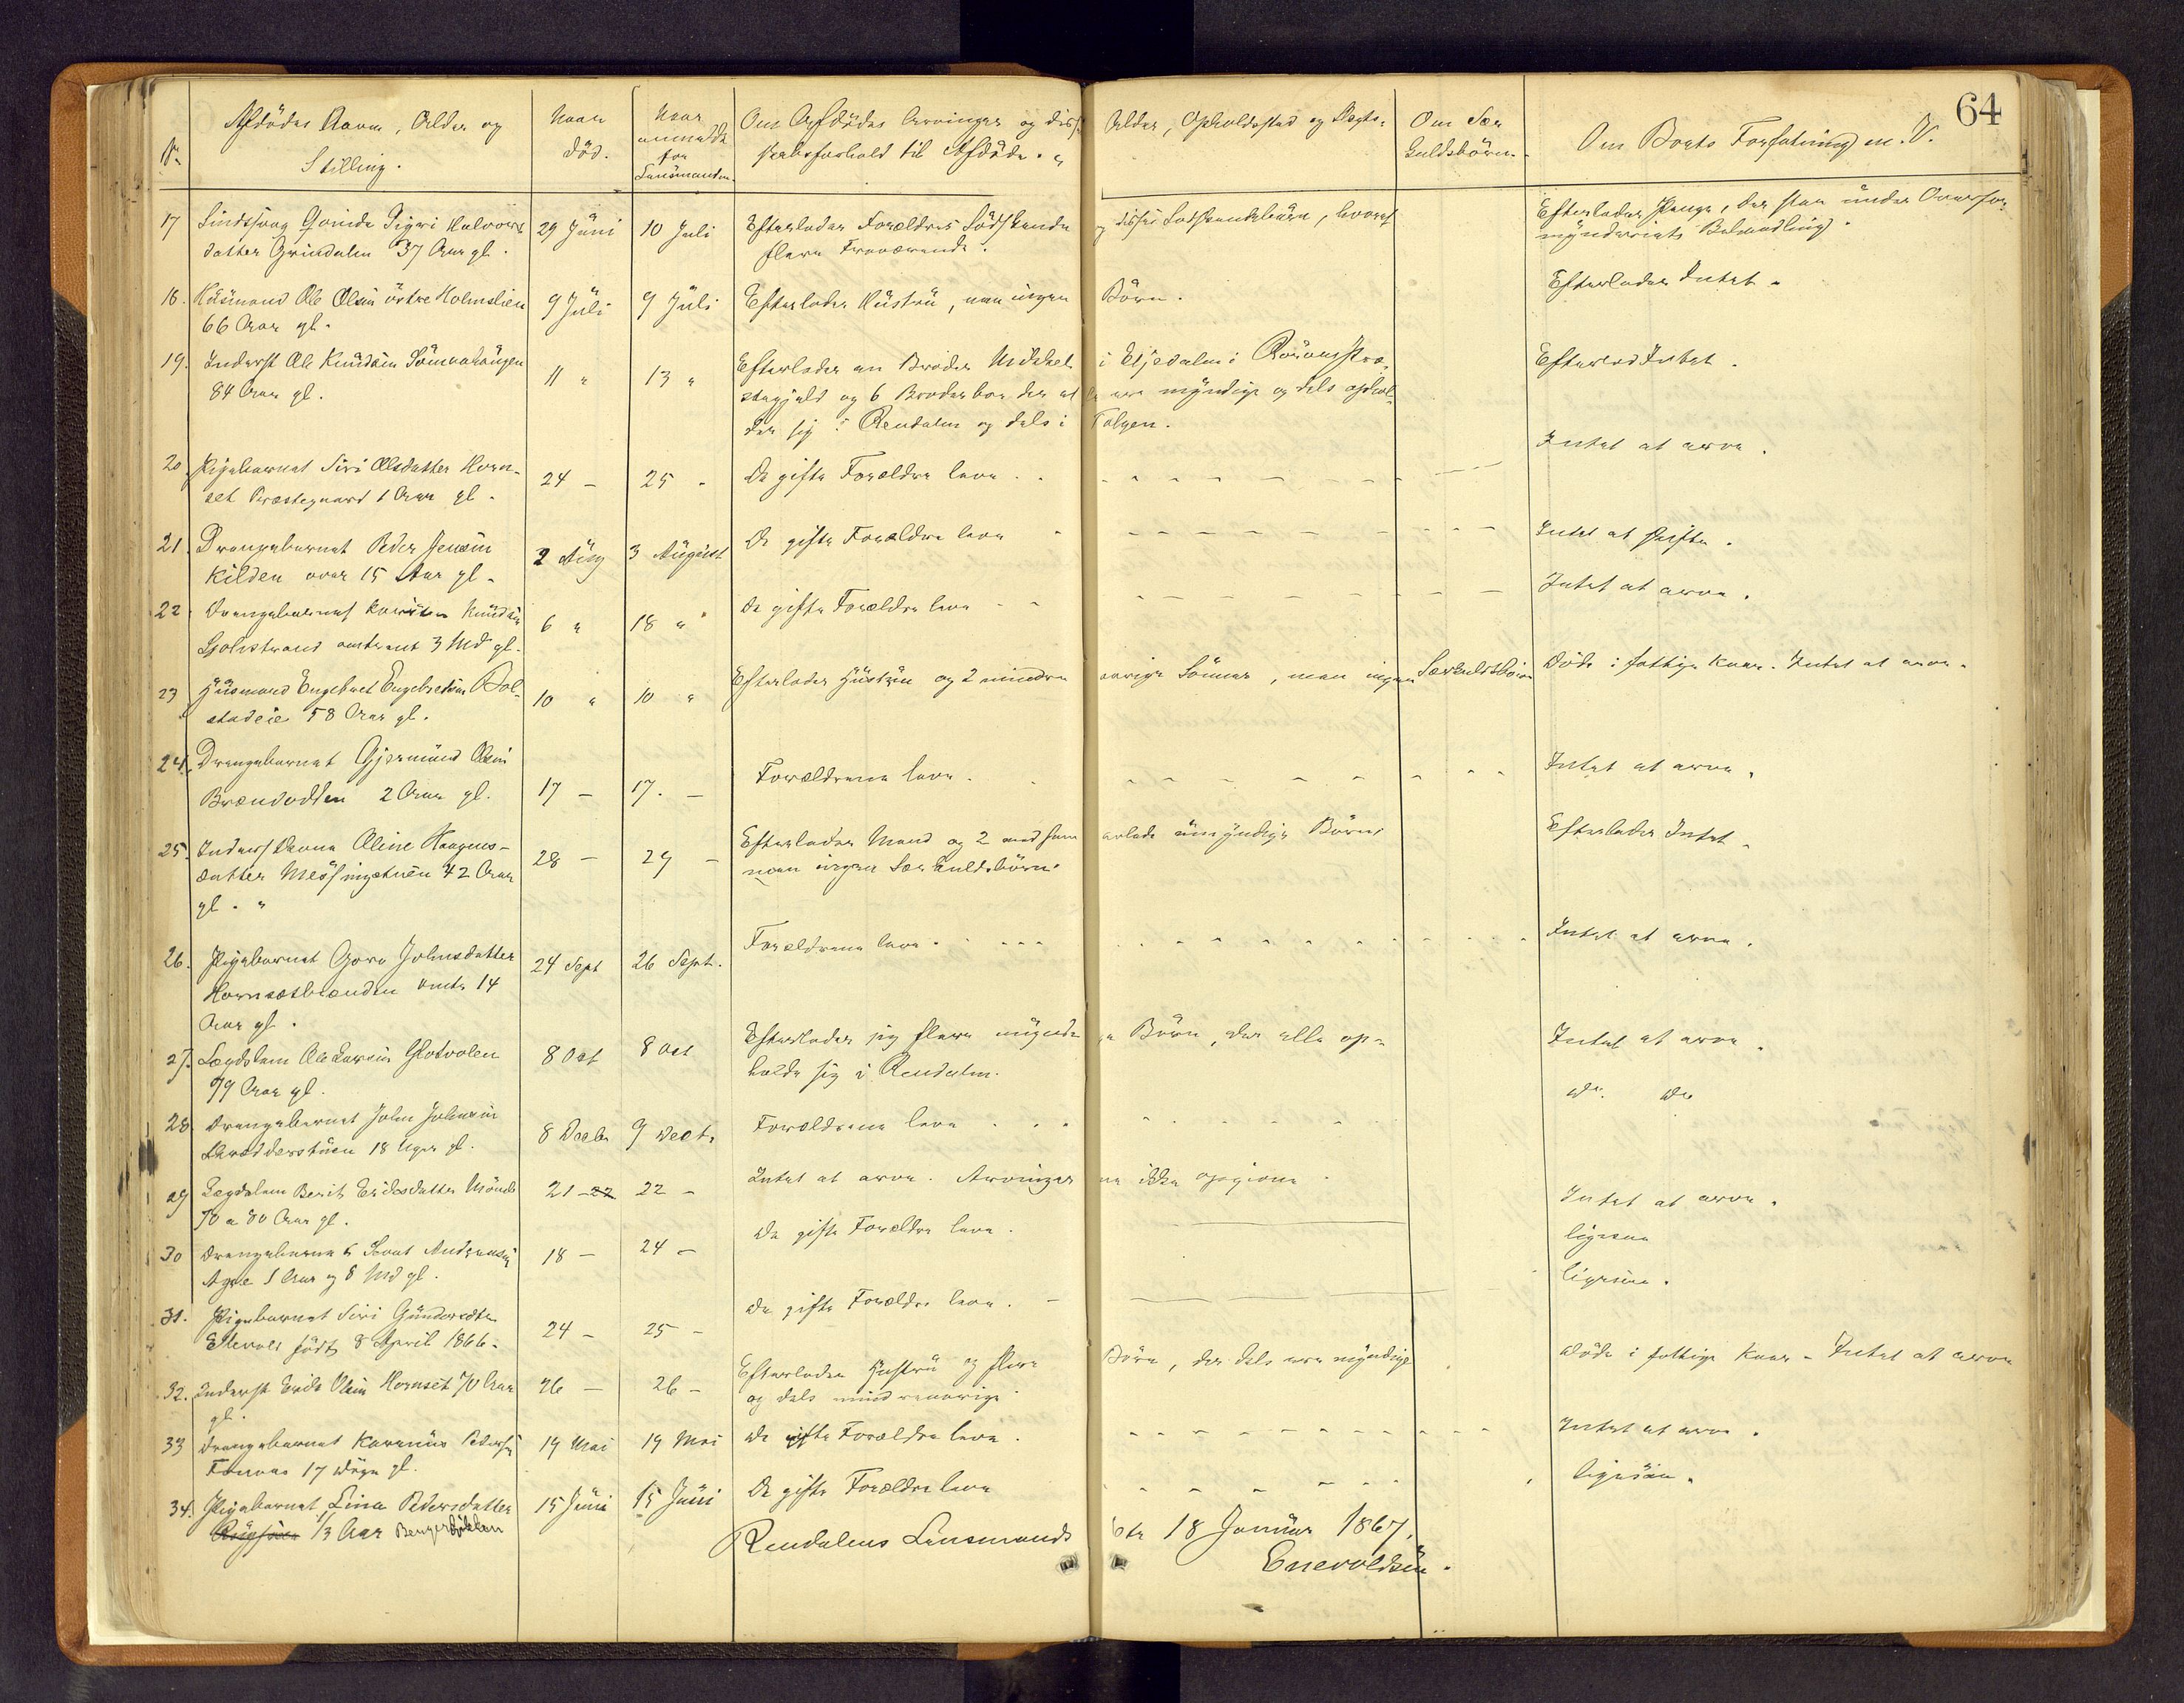 64
No
Afdødes Navn, Alder og
Stilling.
Naar
død.
Naar
anmeldt
for
Lensmanden.
Om Afdødes Arvinger og disses Alder, Opholdssted og Slægt-
skabsforhold til Afdøde.
Om Sær
kuldsbörn.
Om Boets Forfatning m. V.
17 Sindssvag Gonide Sigri Halvors 29 Juni 10 Juli Efterlader Forældres Södskende og disses Södskendebörn, hvoraf Efterlader Penge, der staa under Overfor-
datter Grindalen 37 Aar gl. flere Fraværende. mynderiets Behandling.
18. Husmand Ole Olsen östre Holmslien 9 Juli 9 Juli Efterlader Hustru, men ingen Börn. Efterlader Intet.
66 Aar gl.
19. Inderst Ole Knudsen 11 " 13 " Efterlader en Broder Mikkel i Eljedalen i Rörøs Præ- Efterlod Intet.
84 Aar gl. stegjeld og 6 Broderbørn der alle ere myndige og dels ophol-
der sig i Rendalen og dels i Tolgen.
20. Pigebarnet Siri Olsdatter Horn- 24 - 25 - De gifte Forældre leve. Intet at arve.
set Præstegaard 1 Aar gl.
21. Drengebarnet Peder Jensen 2 Aug 3 August De gifte Forældre leve Intet at skifte.
Kilden over 15 Aar gl.
22. Drengebarnet Knudsen 6 " 18 " De gifte Forældre leve Intet at arve.
Sjolistrand omtrent 3 Md gl.
23 Husmand Engebret Engebretsen Bol- 10 " 10 " Efterlader Hustru og 2 mindre aarige Sönner, men ingen Særkuldsbörn Døde i fattige Kaar. Intet at arve.
stadeie 58 Aar gl.
24. Drengebarnet Gjermund Olsen 17 - 17. - Forældrene leve. Intet at arve.
Brændodden 2 Aar gl.
25. Inderstkone Oline Haagens- 28 - 29 - Efterlader Mand og 2 med ham avlede umyndige Börn, Efterlader Intet.
datter Messingstuen 42 Aar men ingen Særkuldsbörn.
gl.
26. Pigebarnet Goro Johnsdatter 24 Sept 26 Sept. Forældrene leve. Intet at arve.
Hornsetbrænden omtr 14
Aar gl.
27. Lægdslem Ole Larsen Flotvolen 8 Oct 8 Oct Efterlader sig flere myndige Børn, der alle op- Intet at arve.
79 Aar gl. holde sig i Rendalen.
28 Drengebarnet John Johnsen 8 Decbr 9 Decbr Forældrene leve do. do
18 Uger gl.
29 Lægdslem Berit Eriksdatter 21 - 22 22 - Intet at arve. Arvingerne ikke opgivne. Intet at arve.
70 a 80 Aar gl.
30 Drengebarnet Andreassen 18 - 24 - De gifte Forældre leve. ligesaa
Agre 1 Aar og 8 Md gl.
31. Pigebarnet Siri Gundersdtr 24 - 25 - De gifte Forældre leve. ligesaa.
Ellevold födt 8 April 1866.
32. Inderst Erik Olsen Hornset 70 Aar 26 - 26 - Efterlader Hustru og flere Börn, der dels ere myndige Døde i fattige Kaar. Intet at arve
gl. og dels mindreaarige.
33 Drengebarnet Karenius Pedersen 19 Mai 19 Mai De gifte Forældre leve. Intet at arve.
17 Døgn gl.
34. Pigebarnet Lina Pedersdatter 15 Juni 15 Juni De gifte Forældre leve ligesaa.
1/3 Aar Bergersbakken
Rendalens Lensmands btr 18 Januar 1867.
Enevoldsen.